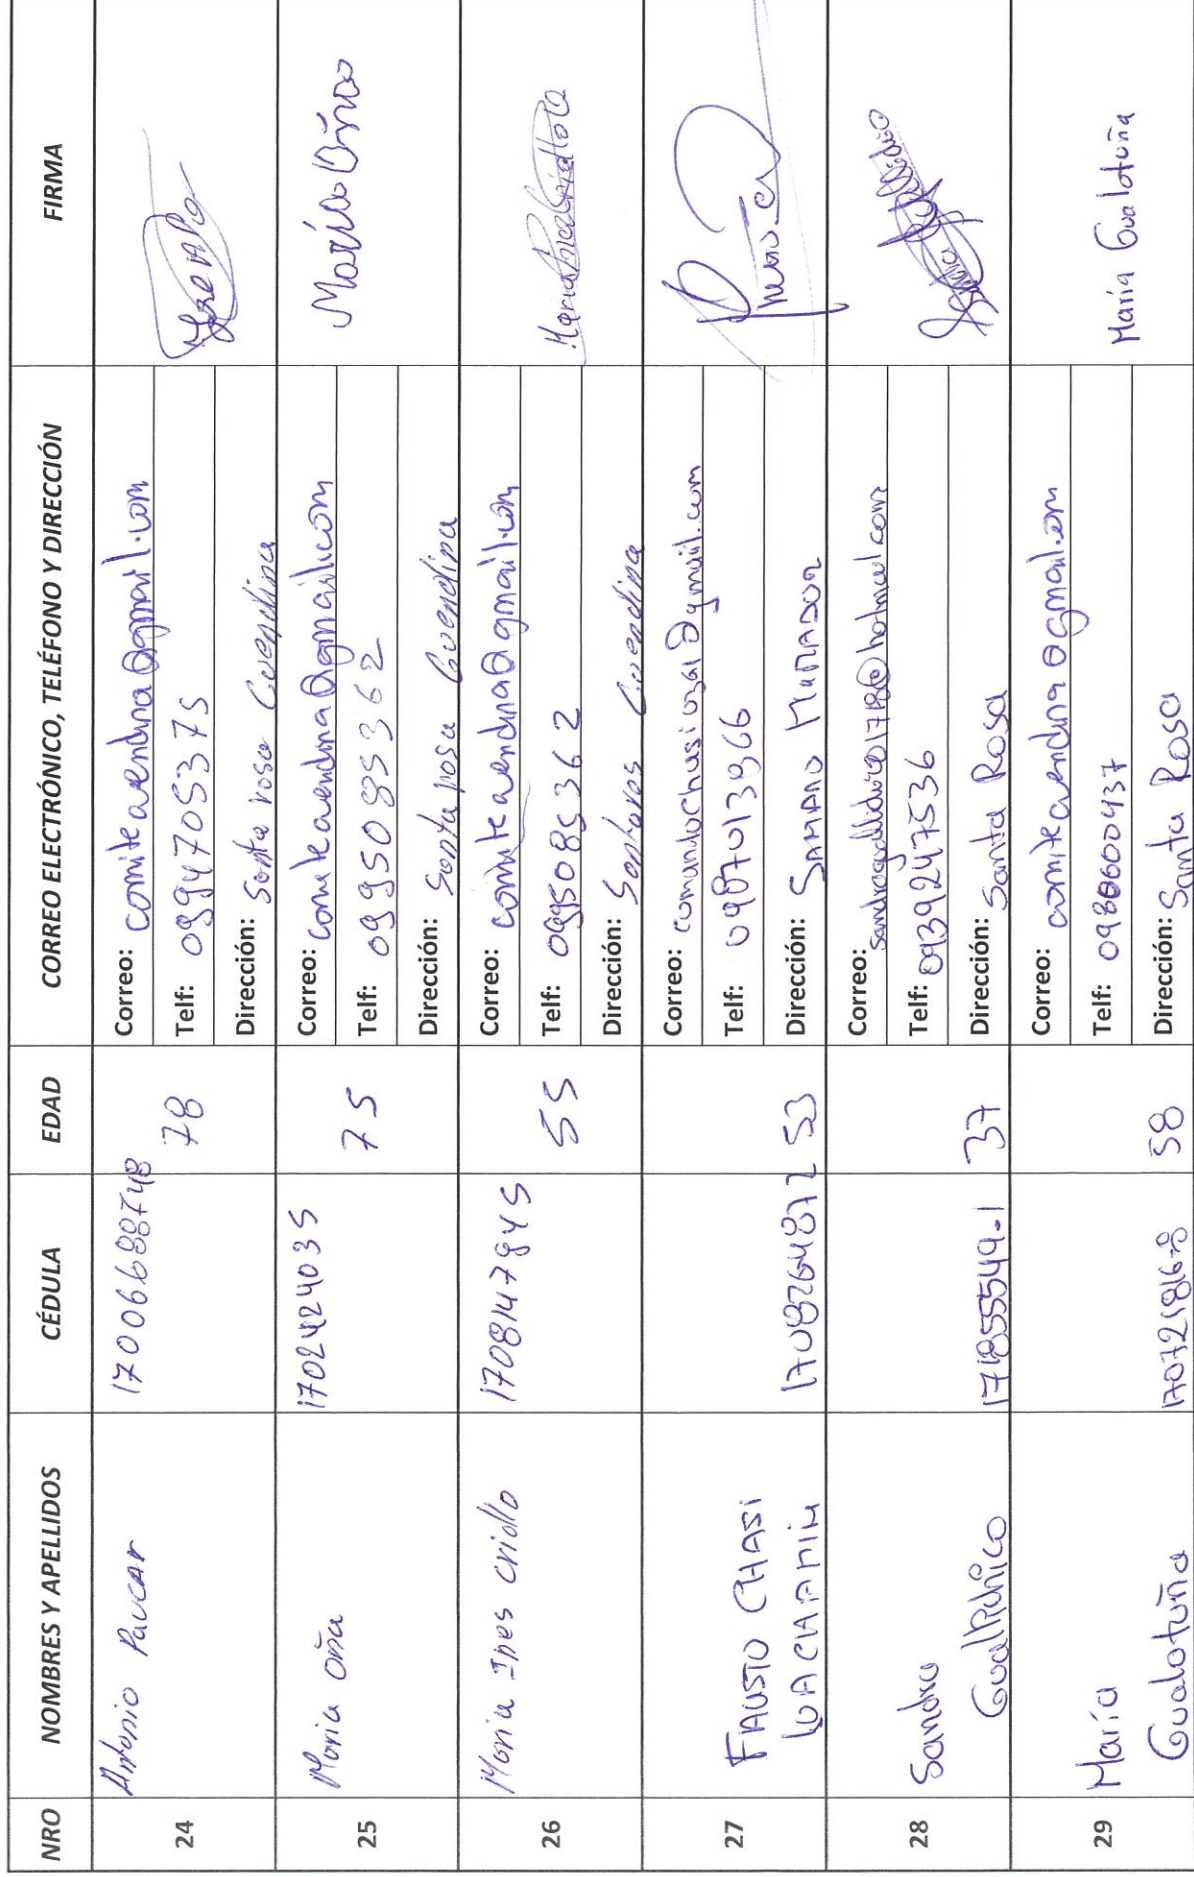 NRO NOMBRES Y APELLIDOS CÉDULA EDAD CORREO ELECTRÓNICO, TELÉFONO Y DIRECCIÓN FIRMA
24 Antonio Paucar 17006688748 78
Correo: comiteavendna@gmail.com
Telf: 0994705375
Dirección: Santa rosa Cuendina
25 Maria Oña 1702424035 75
Correo: comiteavendna@gmail.com
Telf: 0995085362
Dirección: Santa rosa Cuendina
María Oña
26 Maria Ines Criollo 1708147845 55
Correo: comiteavendna@gmail.com
Telf: 0995085362
Dirección: Santa ros Cuendina
27 FAUSTO CHASI
1708264872 53
Correo:
Telf: 0987013866
Dirección:
28 Sandra
171855549-1 37
Correo:
Telf: 0939247536
Dirección: Santa Rosa
29 María
Gualotuña 170721816-8 58
Correo: comiteavendna@gmail.com
Telf: 0980600437
Dirección: Santa Rosa
María Gualotuña